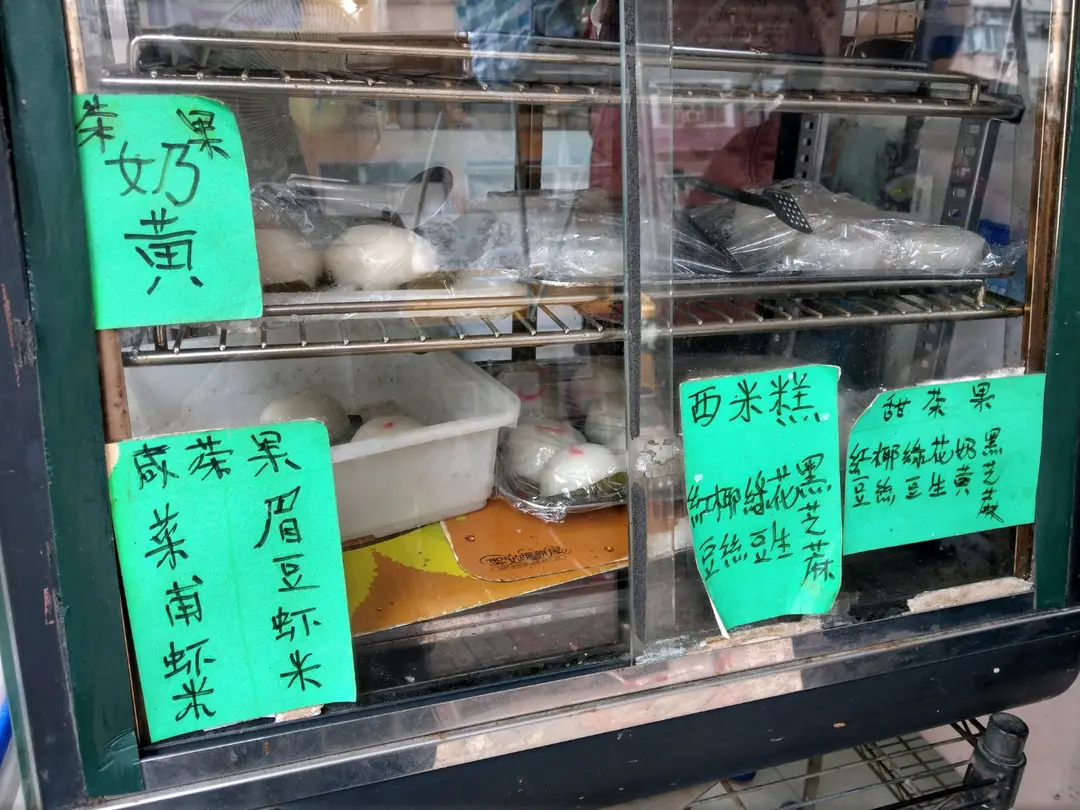 茶果
奶
黃
咸茶果
眉豆虾米
菜甫虾米
西米糕
黑芝麻
花生
綠豆
椰絲
紅豆
甜茶果
黑芝麻
奶黃
花生
綠豆
椰絲
紅豆